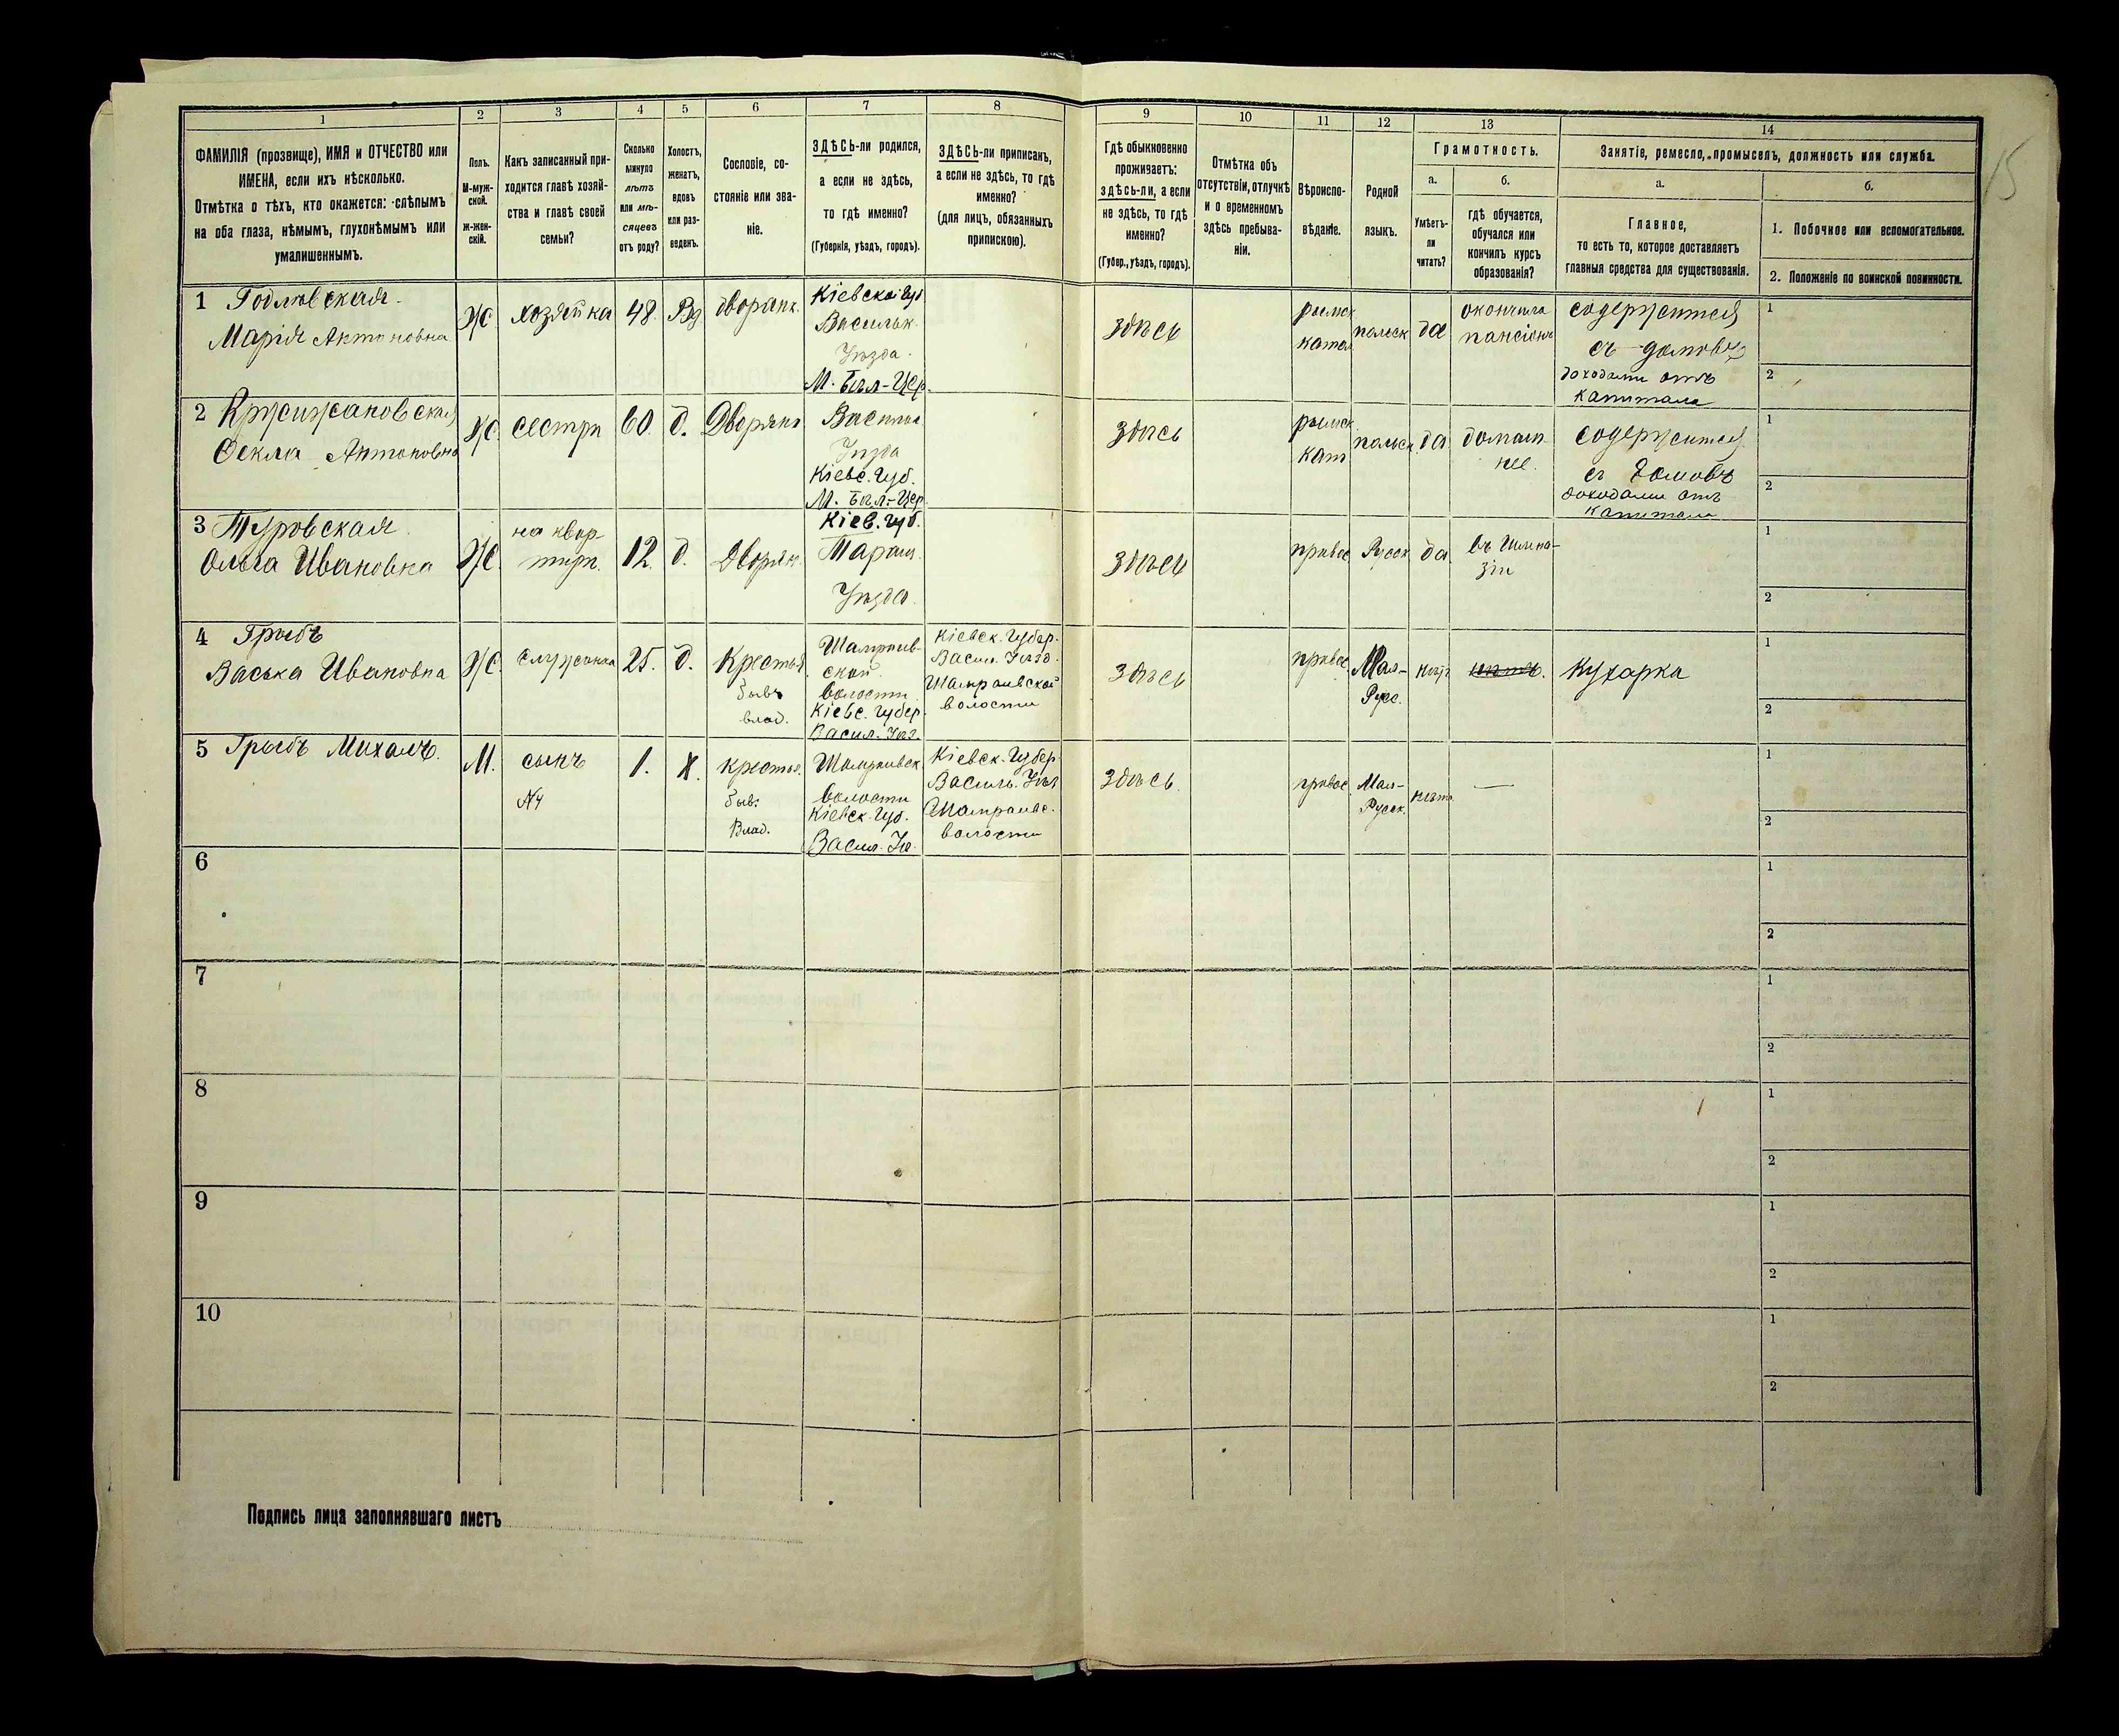 1
2
3
4
5
6
7
8
9
10
11
12
13
14
15
ФАМИЛІЯ (прозвище), ИМЯ и ОТЧЕСТВО или
ИМЕНА, если ихъ нѣсколько.
Отмѣтка о тѣхъ, кто окажется: слѣпымъ
на оба глаза, нѣмымъ, глухонѣмымъ или
умалишеннымъ.
Полъ.
М-муж-
ской.
ж-жен-
скій.
Какъ записанный при-
ходится главѣ хозяй-
ства и главѣ своей
семьи?
Сколько
минуло
лѣтъ
или мѣ-
сяцевъ
отъ роду?
Холостъ,
женатъ,
вдовъ
или раз-
веденъ.
Сословіе, со-
стояніе или зва-
ніе.
ЗДѢСЬ-ли родился,
а если не здѣсь,
то гдѣ именно?
(Губернія, уѣздъ, городъ).
ЗДѢСЬ-ли приписанъ,
а если не здѣсь, то гдѣ
именно?
(для лицъ, обязанныхъ
припискою).
Гдѣ обыкновенно
проживаетъ:
здѣсь-ли, а если
не здѣсь, то гдѣ
именно?
(Губер., уѣздъ, городъ).
Отмѣтка объ
отсутствіи, отлучкѣ
и о временномъ
здѣсь пребыва-
ніи.
Вѣроиспо-
вѣданіе.
Родной
языкъ.
Грамотность.
а.
Умѣетъ-
ли
читать?
б.
гдѣ обучается,
обучался или
кончилъ курсъ
образованія?
Занятіе, ремесло, промыселъ, должность или служба.
а.
Главное,
то есть то, которое доставляетъ
главныя средства для существованія.
б.
1. Побочное или вспомогательное.
2. Положеніе по воинской повинности.
1 Годлевская
Марія Антоновна
Ж.
хозяйка
48.
Вд.
дворянк.
Кіевской Губ
Васильк.
Уѣзда.
М. Бѣл-Цер.
здѣсь
римск
катол
польск
да
окончила
пансіонъ
содержится
съ домовъ
доходами отъ
капитала
1
2
2 Кржижановская
Фекла Антоновна
Ж.
сестра
60.
д.
Дворянк
Васильк
Уѣзда
Кіевс. Губ.
М. Бѣл-Цер.
здѣсь
римск
кат
польск.
да
домаш-
нее.
содержится
съ домовъ
доходами отъ
капитала
1
2
3 Туровская
Ольга Ивановна
Ж.
на квар-
тирѣ.
12.
д.
Дворян.
Кіев. губ.
Таращ.
Уѣзда.
здѣсь
правос
Русск
да
въ Гимна-
зіи
1
2
4 Грибъ
Васька Ивановна
Ж.
служанка
25.
д.
Крестья
бывъ
влад.
Шамраев-
ской
волости
Кіевс. Губер.
Васил. Уѣз.
Кіевск. Губер.
Васил. Уѣзд.
Шамраевской
волости
здѣсь
правос.
Мал-
Русс.
нѣтъ
нѣтъ.
Кухарка
1
2
5 Грибъ Михаилъ.
М.
сынъ
№4
1.
Х.
крестья.
быв.
Влад.
Шамраевск
волости
Кіевск. Губ.
Васил. Уѣ.
Кіевск. Губер.
Василь. Уѣз
Шамраевс.
волости
здѣсь.
правос
Мал-
Русск.
нѣтъ
—
1
2
6
1
2
7
1
2
8
1
2
9
1
2
10
1
2
Подпись лица заполнявшаго листъ